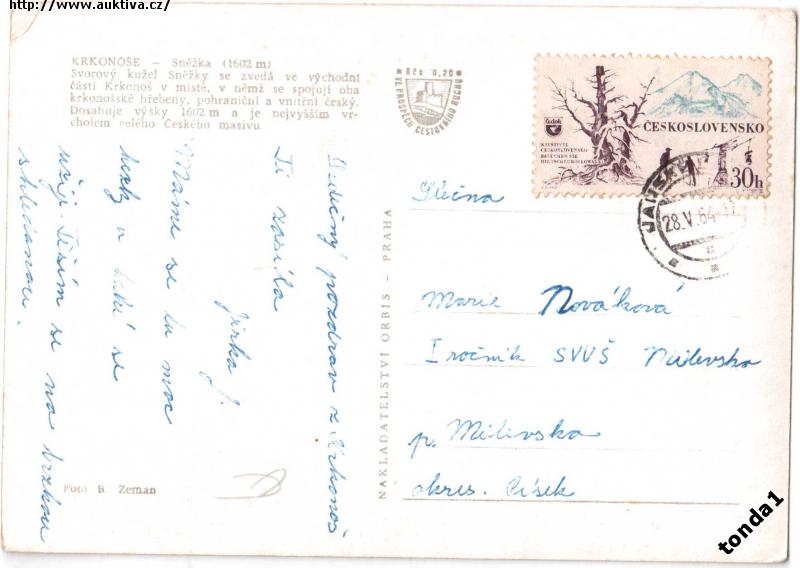 http://www.auktiva.cz/
KRKONOŠE – Sněžka (1602 m)
Svorový kužel Sněžky se zvedá ve východní
části Krkonoš v místě, v němž se spojují oba
krkonošské hřebeny, pohraniční a vnitřní český.
Dosahuje výšky 1602 m a je nejvyšším vr-
cholem celého Českého masivu.
Kčs 0,20
VE PROSPĚCH CESTOVNÍHO RUCHU
ČESKOSLOVENSKO
30h
28.V.64
Srdečný pozdrav z Krkonoš
Ti zasílá
Jirka J.
Máme se tu moc
hezky a také se
užije. Těším se na brzkou
shledanou.
NAKLADATELSTVÍ ORBIS – PRAHA
Slečna
Marie Nováková
I ročník SVVŠ Milevsko
p. Milevsko
okres. Písek
Foto B. Zeman
tonda1